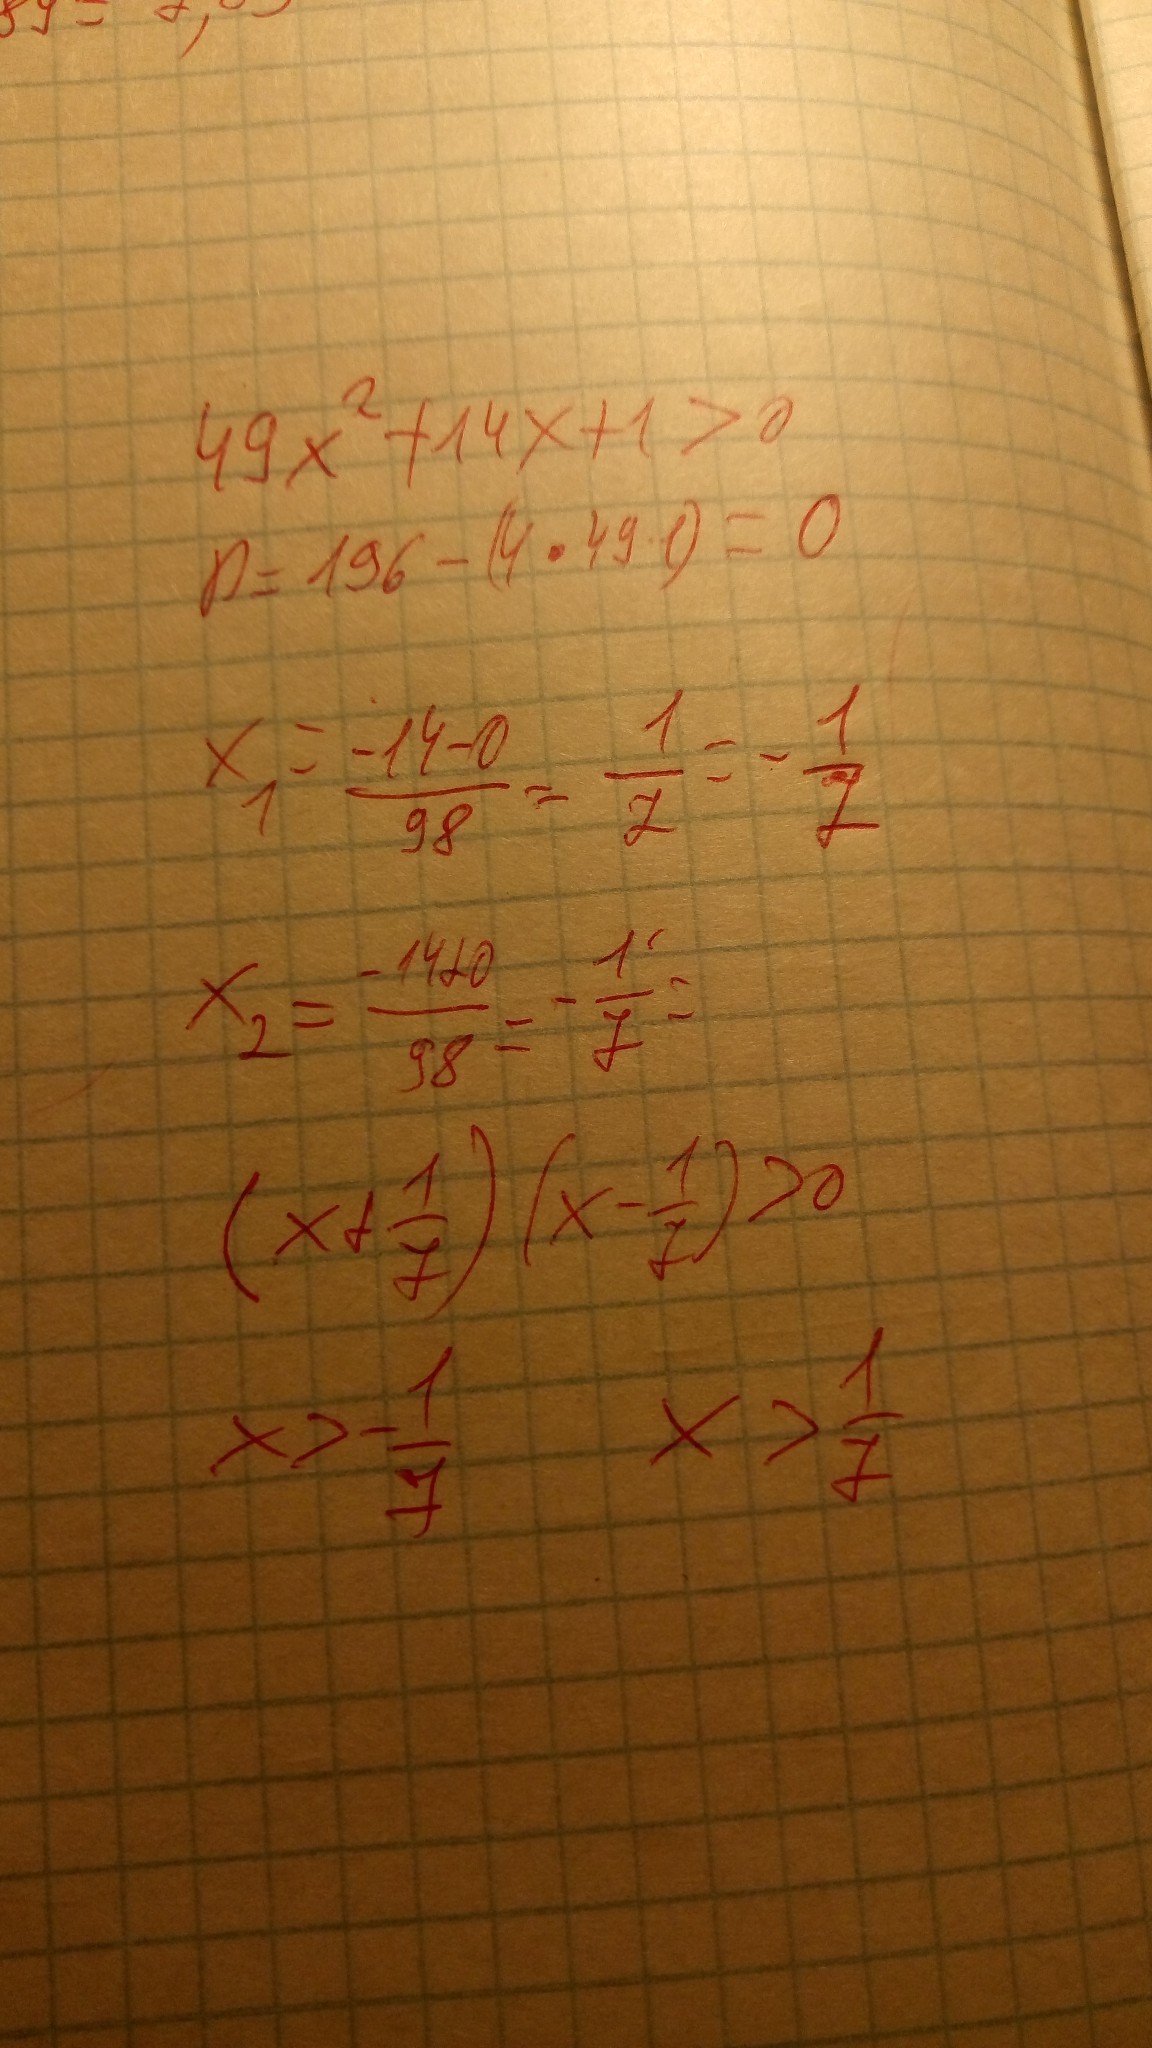 49x²+14x+1>0
D=196-(4·49·1)=0
x₁=-14-0/98=1/7=-1/7
x₂=-14+0/98=-1/7=
(x+1/7)(x-1/7)>0
x>-1/7 x>1/7